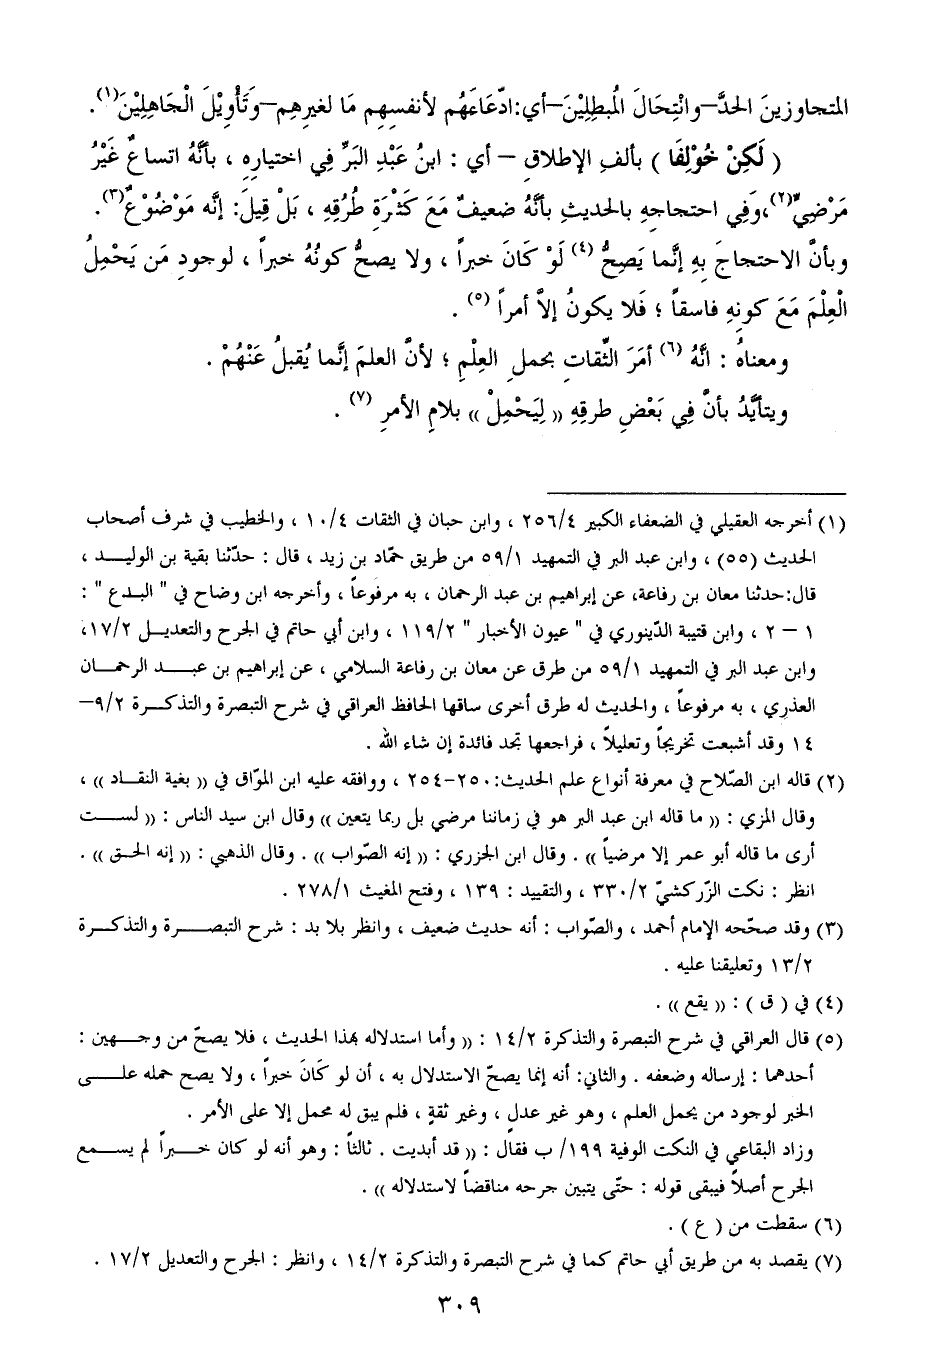 المتجاوزينَ الحدَّ–وانْتِحَالَ المُبطِلِيْنَ–أي:ادّعَاءَهُم لأنفسِهِم مَا لغيرِهِم–وَتَأْوِيْلَ الْجَاهِلِيْنَ(١).
( لَكِنْ خُوْلِفَا ) بألفِ الإطلاقِ – أي : ابنُ عَبْدِ البَرِّ فِي اختيارِهِ ، بأنَّهُ اتساعٌ غَيْرُ
مَرْضِيٍّ(٢)،وَفِي احتجاجِهِ بالحديثِ بأنَّهُ ضعيفٌ مَعَ كَثْرَةِ طُرُقِهِ ، بَلْ قِيلَ: إنَّه مَوْضُوْعٌ(٣).
وبأنَّ الاحتجاجَ بِهِ إنَّما يَصِحُّ (٤) لَوْ كَانَ خبراً ، ولا يصحُّ كونُهُ خبراً ، لوجودِ مَن يَحْمِلُ
الْعِلْمَ مَعَ كونِهِ فاسقاً ؛ فَلا يكونُ إلاَّ أمراً (٥) .
ومعناهُ : انَّهُ (٦) أمَرَ الثِّقاتِ بحملِ العِلْمِ ؛ لأنَّ العلمَ إنَّما يُقبلُ عَنْهُمْ .
ويتأيَّدُ بأنَّ فِي بَعْضِ طرقِهِ (( لِيَحْمِلْ )) بلامِ الأمرِ (٧) .
(١) أخرجه العقيلي في الضعفاء الكبير ٢٥٦/٤ ، وابن حبان في الثقات ١٠/٤ ، والخطيب في شرف أصحاب
الحديث (٥٥) ، وابن عبد البر في التمهيد ٥٩/١ من طريق حمّاد بن زيد ، قال : حدّثنا بقية بن الوليد ،
قال:حدثنا معان بن رفاعة، عن إبراهيم بن عبد الرحمان ، به مرفوعاً ، وأخرجه ابن وضاح في " البدع " :
١ – ٢ ، وابن قتيبة الدّينوري في " عيون الأخبار " ١١٩/٢ ، وابن أبي حاتم في الجرح والتعديل ١٧/٢،
وابن عبد البر في التمهيد ٥٩/١ من طرق عن معان بن رفاعة السلامي ، عن إبراهيم بن عبد الرحمان
العذري ، به مرفوعاً ، والحديث له طرق أخرى ساقها الحافظ العراقي في شرح التبصرة والتذكرة ٩/٢–
١٤ وقد أشبعت تخريجاً وتعليلاً ، فراجعها تجد فائدة إن شاء الله .
(٢) قاله ابن الصّلاح في معرفة أنواع علم الحديث:٢٥٠-٢٥٤ ، ووافقه عليه ابن الموّاق في (( بغية النقاد )) ،
وقال المزي : (( ما قاله ابن عبد البر هو في زماننا مرضي بل ربما يتعين )) وقال ابن سيد الناس : (( لست
أرى ما قاله أبو عمر إلا مرضياً )) . وقال ابن الجزري : (( إنه الصّواب )) . وقال الذهبي : (( إنه الحق )) .
انظر : نكت الزّركشيّ ٣٣٠/٢ ، والتقييد : ١٣٩ ، وفتح المغيث ٢٧٨/١ .
(٣) وقد صحّحه الإمام أحمد ، والصّواب : أنه حديث ضعيف ، وانظر بلا بد : شرح التبصرة والتذكرة
١٣/٢ وتعليقنا عليه .
(٤) في ( ق ) : (( يقع )) .
(٥) قال العراقي في شرح التبصرة والتذكرة ١٤/٢ : (( وأما استدلاله بهذا الحديث ، فلا يصحّ من وجهين :
أحدهما : إرساله وضعفه . والثاني: أنه إنما يصحّ الاستدلال به ، أن لو كَانَ خبراً ، ولا يصح حمله على
الخبر لوجود من يحمل العلم ، وهو غير عدلٍ ، وغير ثقةٍ ، فلم يبق له محمل إلا على الأمر .
وزاد البقاعي في النكت الوفية ١٩٩/ ب فقال : (( قد أبديت . ثالثاً : وهو أنه لو كان خبراً لم يسمع
الجرح أصلاً فيبقى قوله : حتّى يتبين جرحه مناقضاً لاستدلاله )) .
(٦) سقطت من ( ع ) .
(٧) يقصد به من طريق أبي حاتم كما في شرح التبصرة والتذكرة ١٤/٢ ، وانظر : الجرح والتعديل ١٧/٢ .
٣٠٩